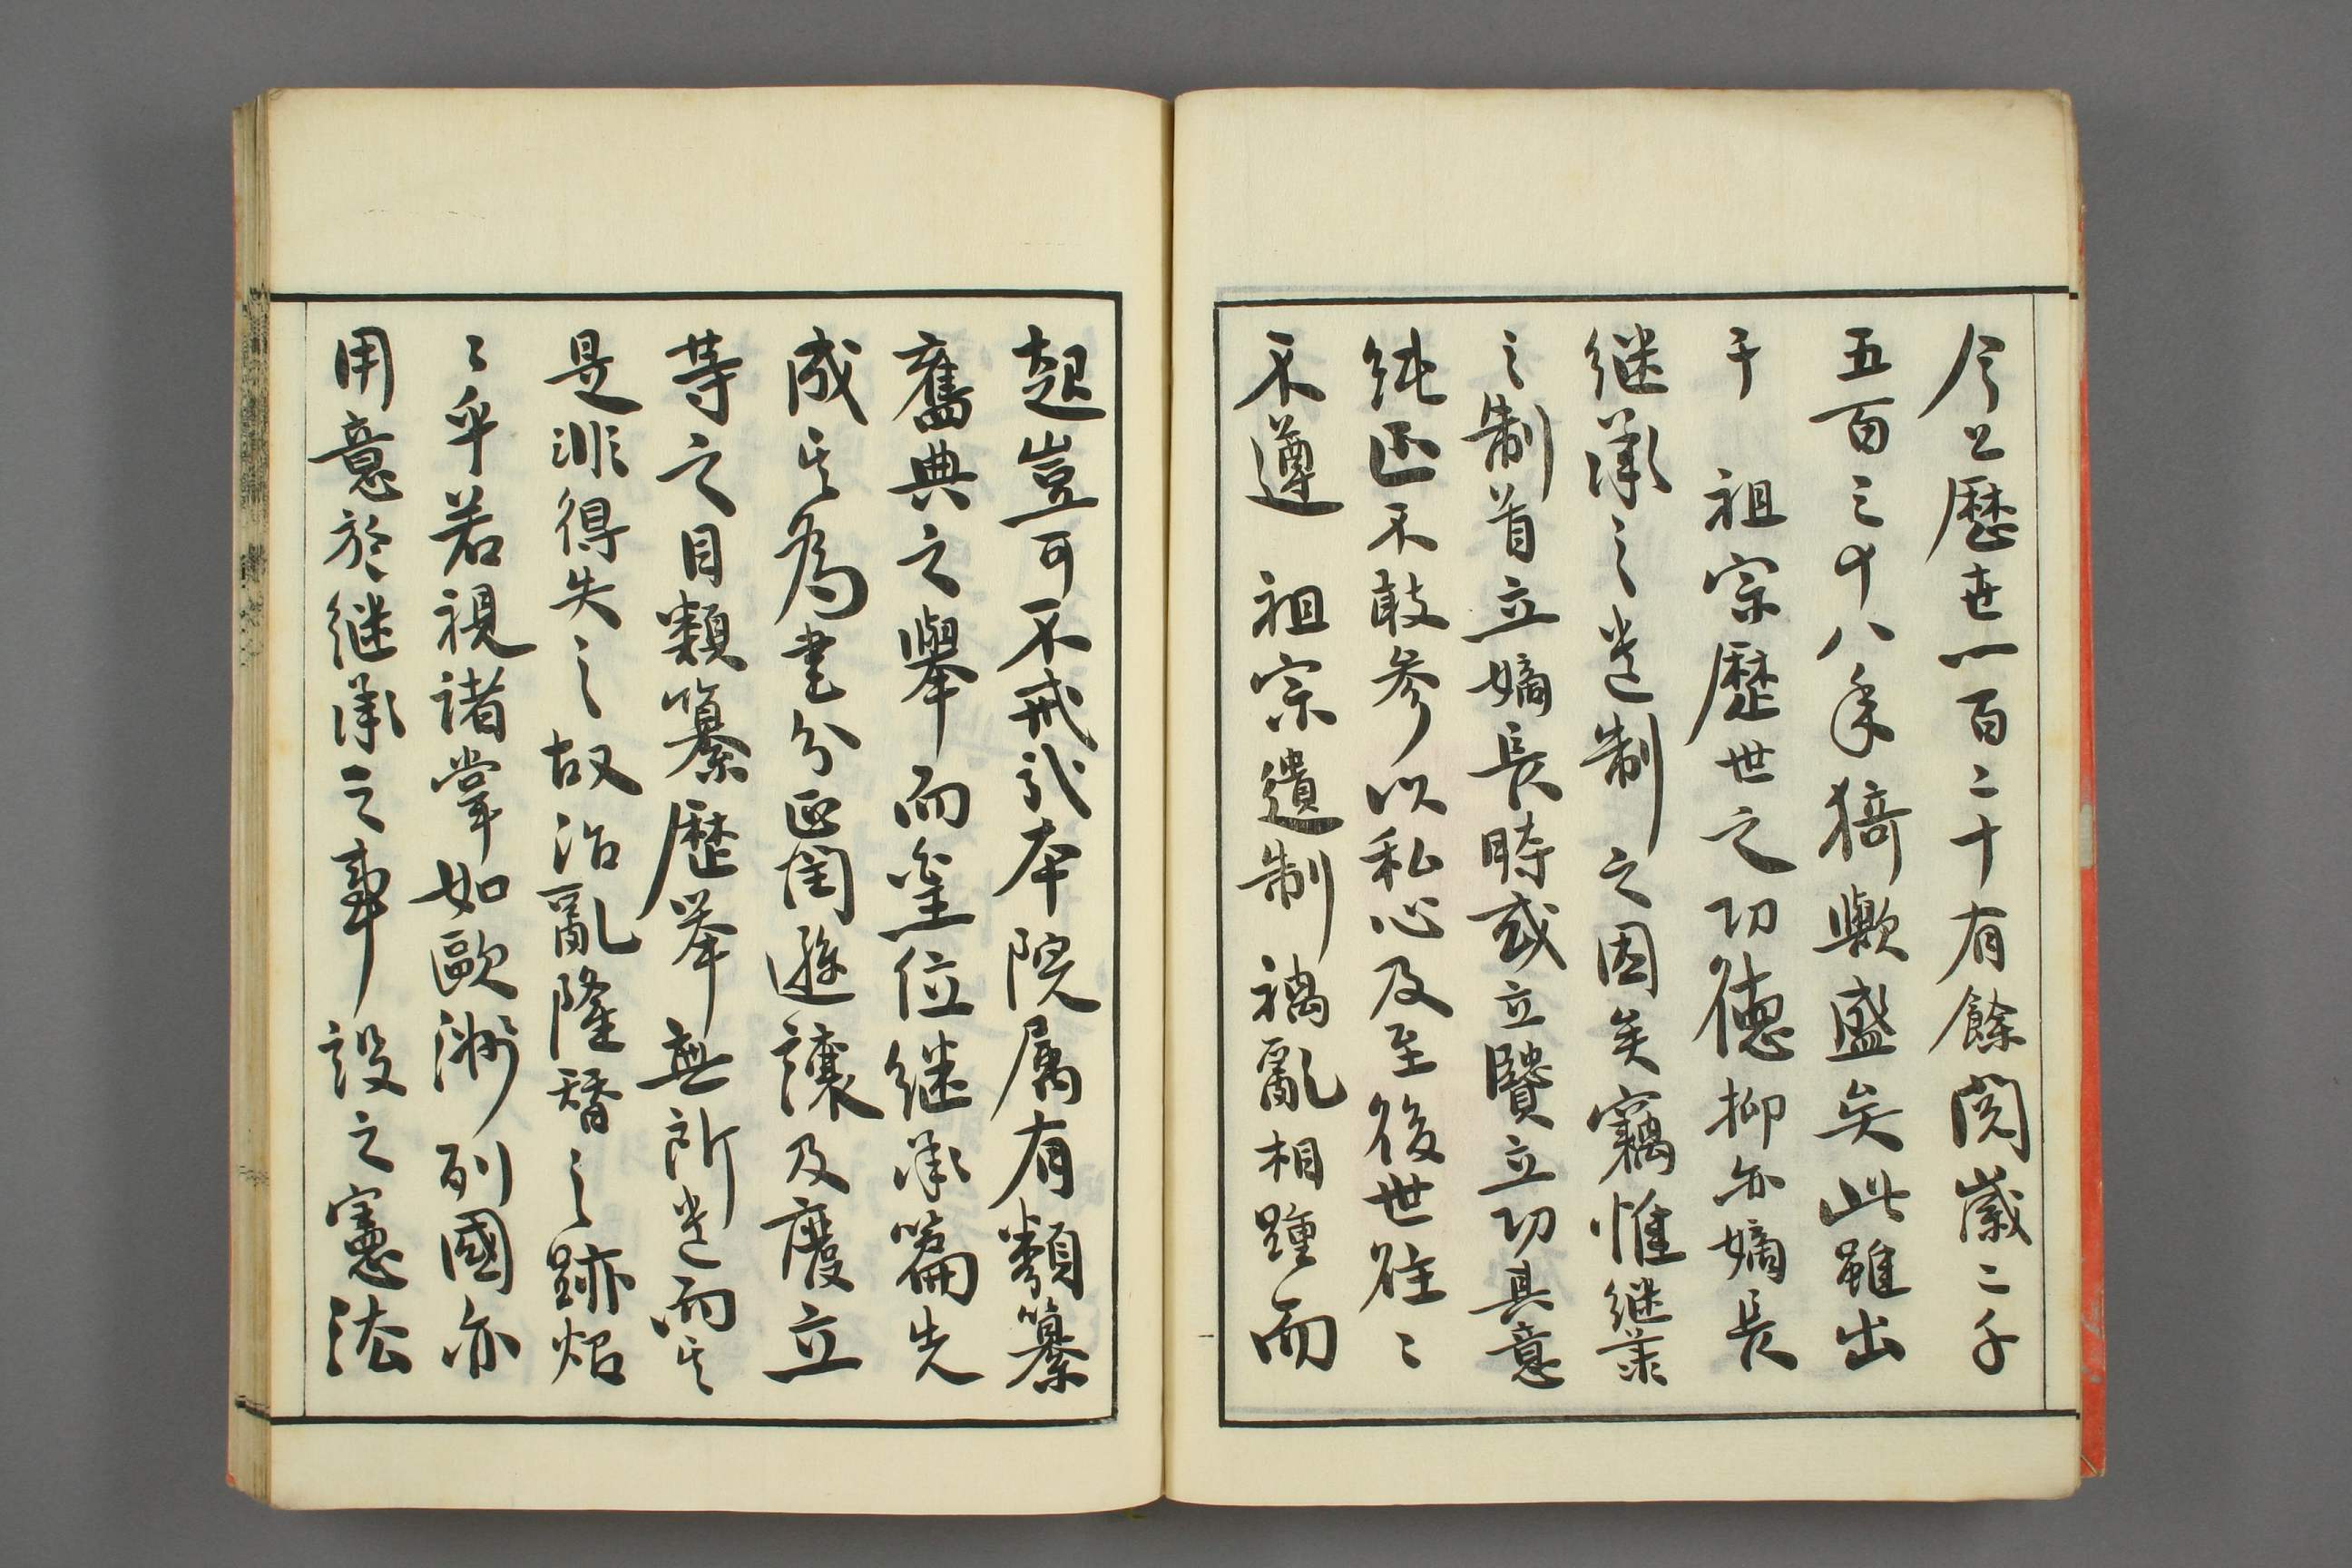 今上歴世一百二十有餘閲歳二千
五百三十八年猗歟盛矣此雖出
于　祖宗歴世之功徳抑亦嫡長
継承之遺制之因矣竊惟継業
之制首立嫡長時或立賢立功其意
純正不敢参以私心及至後世往〻
不遵　祖宗遺制禍亂相踵而
起豈可不戒哉本院属有類纂
舊典之擧而皇位継承篇先
成其為書分正閏遜譲及廢立
等之目類纂歴挙無所遺而其
是非得失之故治亂隆替之跡炤
〻乎若視諸掌如歐洲列國亦
用意於継承之事設之憲法